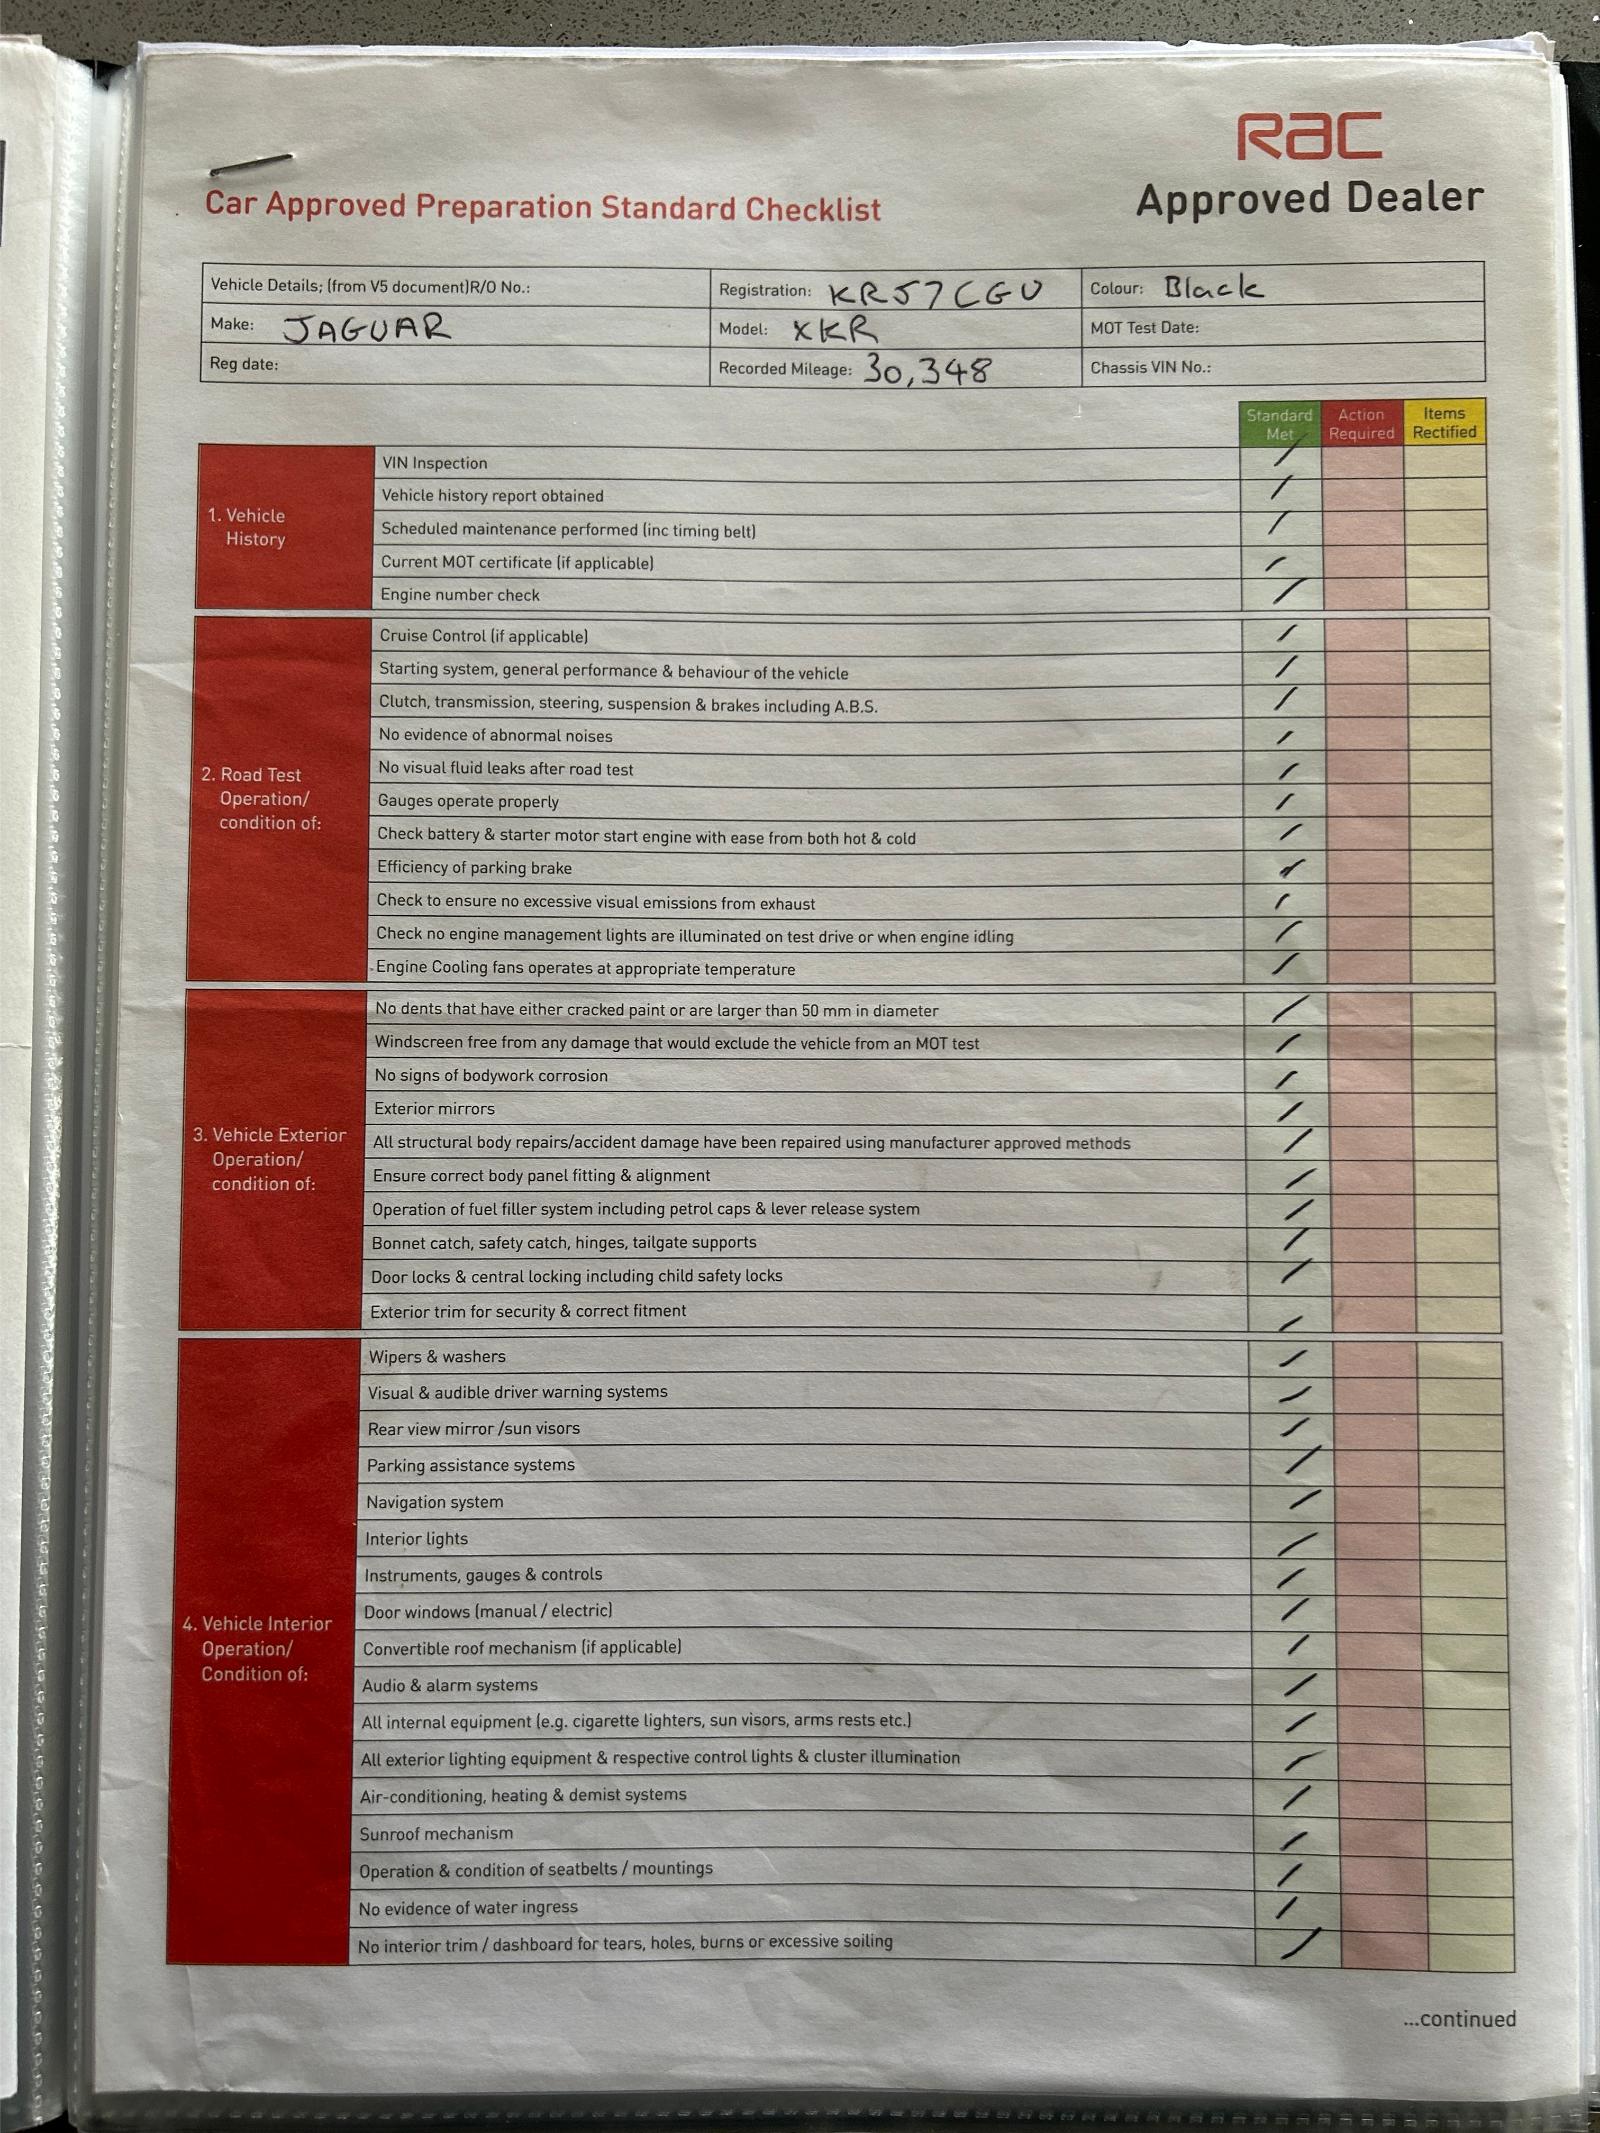 RAC
Approved Dealer
Car Approved Preparation Standard Checklist
Vehicle Details; (from V5 document)R/O No.:
Registration: KR57CGU
Colour: Black
Make: JAGUAR
Model: XKR
MOT Test Date:
Reg date:
Recorded Mileage: 30,348
Chassis VIN No.:
Standard Met
Action Required
Items Rectified
1. Vehicle
History
VIN Inspection
Vehicle history report obtained
Scheduled maintenance performed (inc timing belt)
Current MOT certificate (if applicable)
Engine number check
2. Road Test
Operation/
condition of:
Cruise Control (if applicable)
Starting system, general performance & behaviour of the vehicle
Clutch, transmission, steering, suspension & brakes including A.B.S.
No evidence of abnormal noises
No visual fluid leaks after road test
Gauges operate properly
Check battery & starter motor start engine with ease from both hot & cold
Efficiency of parking brake
Check to ensure no excessive visual emissions from exhaust
Check no engine management lights are illuminated on test drive or when engine idling
Engine Cooling fans operates at appropriate temperature
3. Vehicle Exterior
Operation/
condition of:
No dents that have either cracked paint or are larger than 50 mm in diameter
Windscreen free from any damage that would exclude the vehicle from an MOT test
No signs of bodywork corrosion
Exterior mirrors
All structural body repairs/accident damage have been repaired using manufacturer approved methods
Ensure correct body panel fitting & alignment
Operation of fuel filler system including petrol caps & lever release system
Bonnet catch, safety catch, hinges, tailgate supports
Door locks & central locking including child safety locks
Exterior trim for security & correct fitment
4. Vehicle Interior
Operation/
Condition of:
Wipers & washers
Visual & audible driver warning systems
Rear view mirror /sun visors
Parking assistance systems
Navigation system
Interior lights
Instruments, gauges & controls
Door windows (manual / electric)
Convertible roof mechanism (if applicable)
Audio & alarm systems
All internal equipment (e.g. cigarette lighters, sun visors, arms rests etc.)
All exterior lighting equipment & respective control lights & cluster illumination
Air-conditioning, heating & demist systems
Sunroof mechanism
Operation & condition of seatbelts / mountings
No evidence of water ingress
No interior trim / dashboard for tears, holes, burns or excessive soiling
...continued